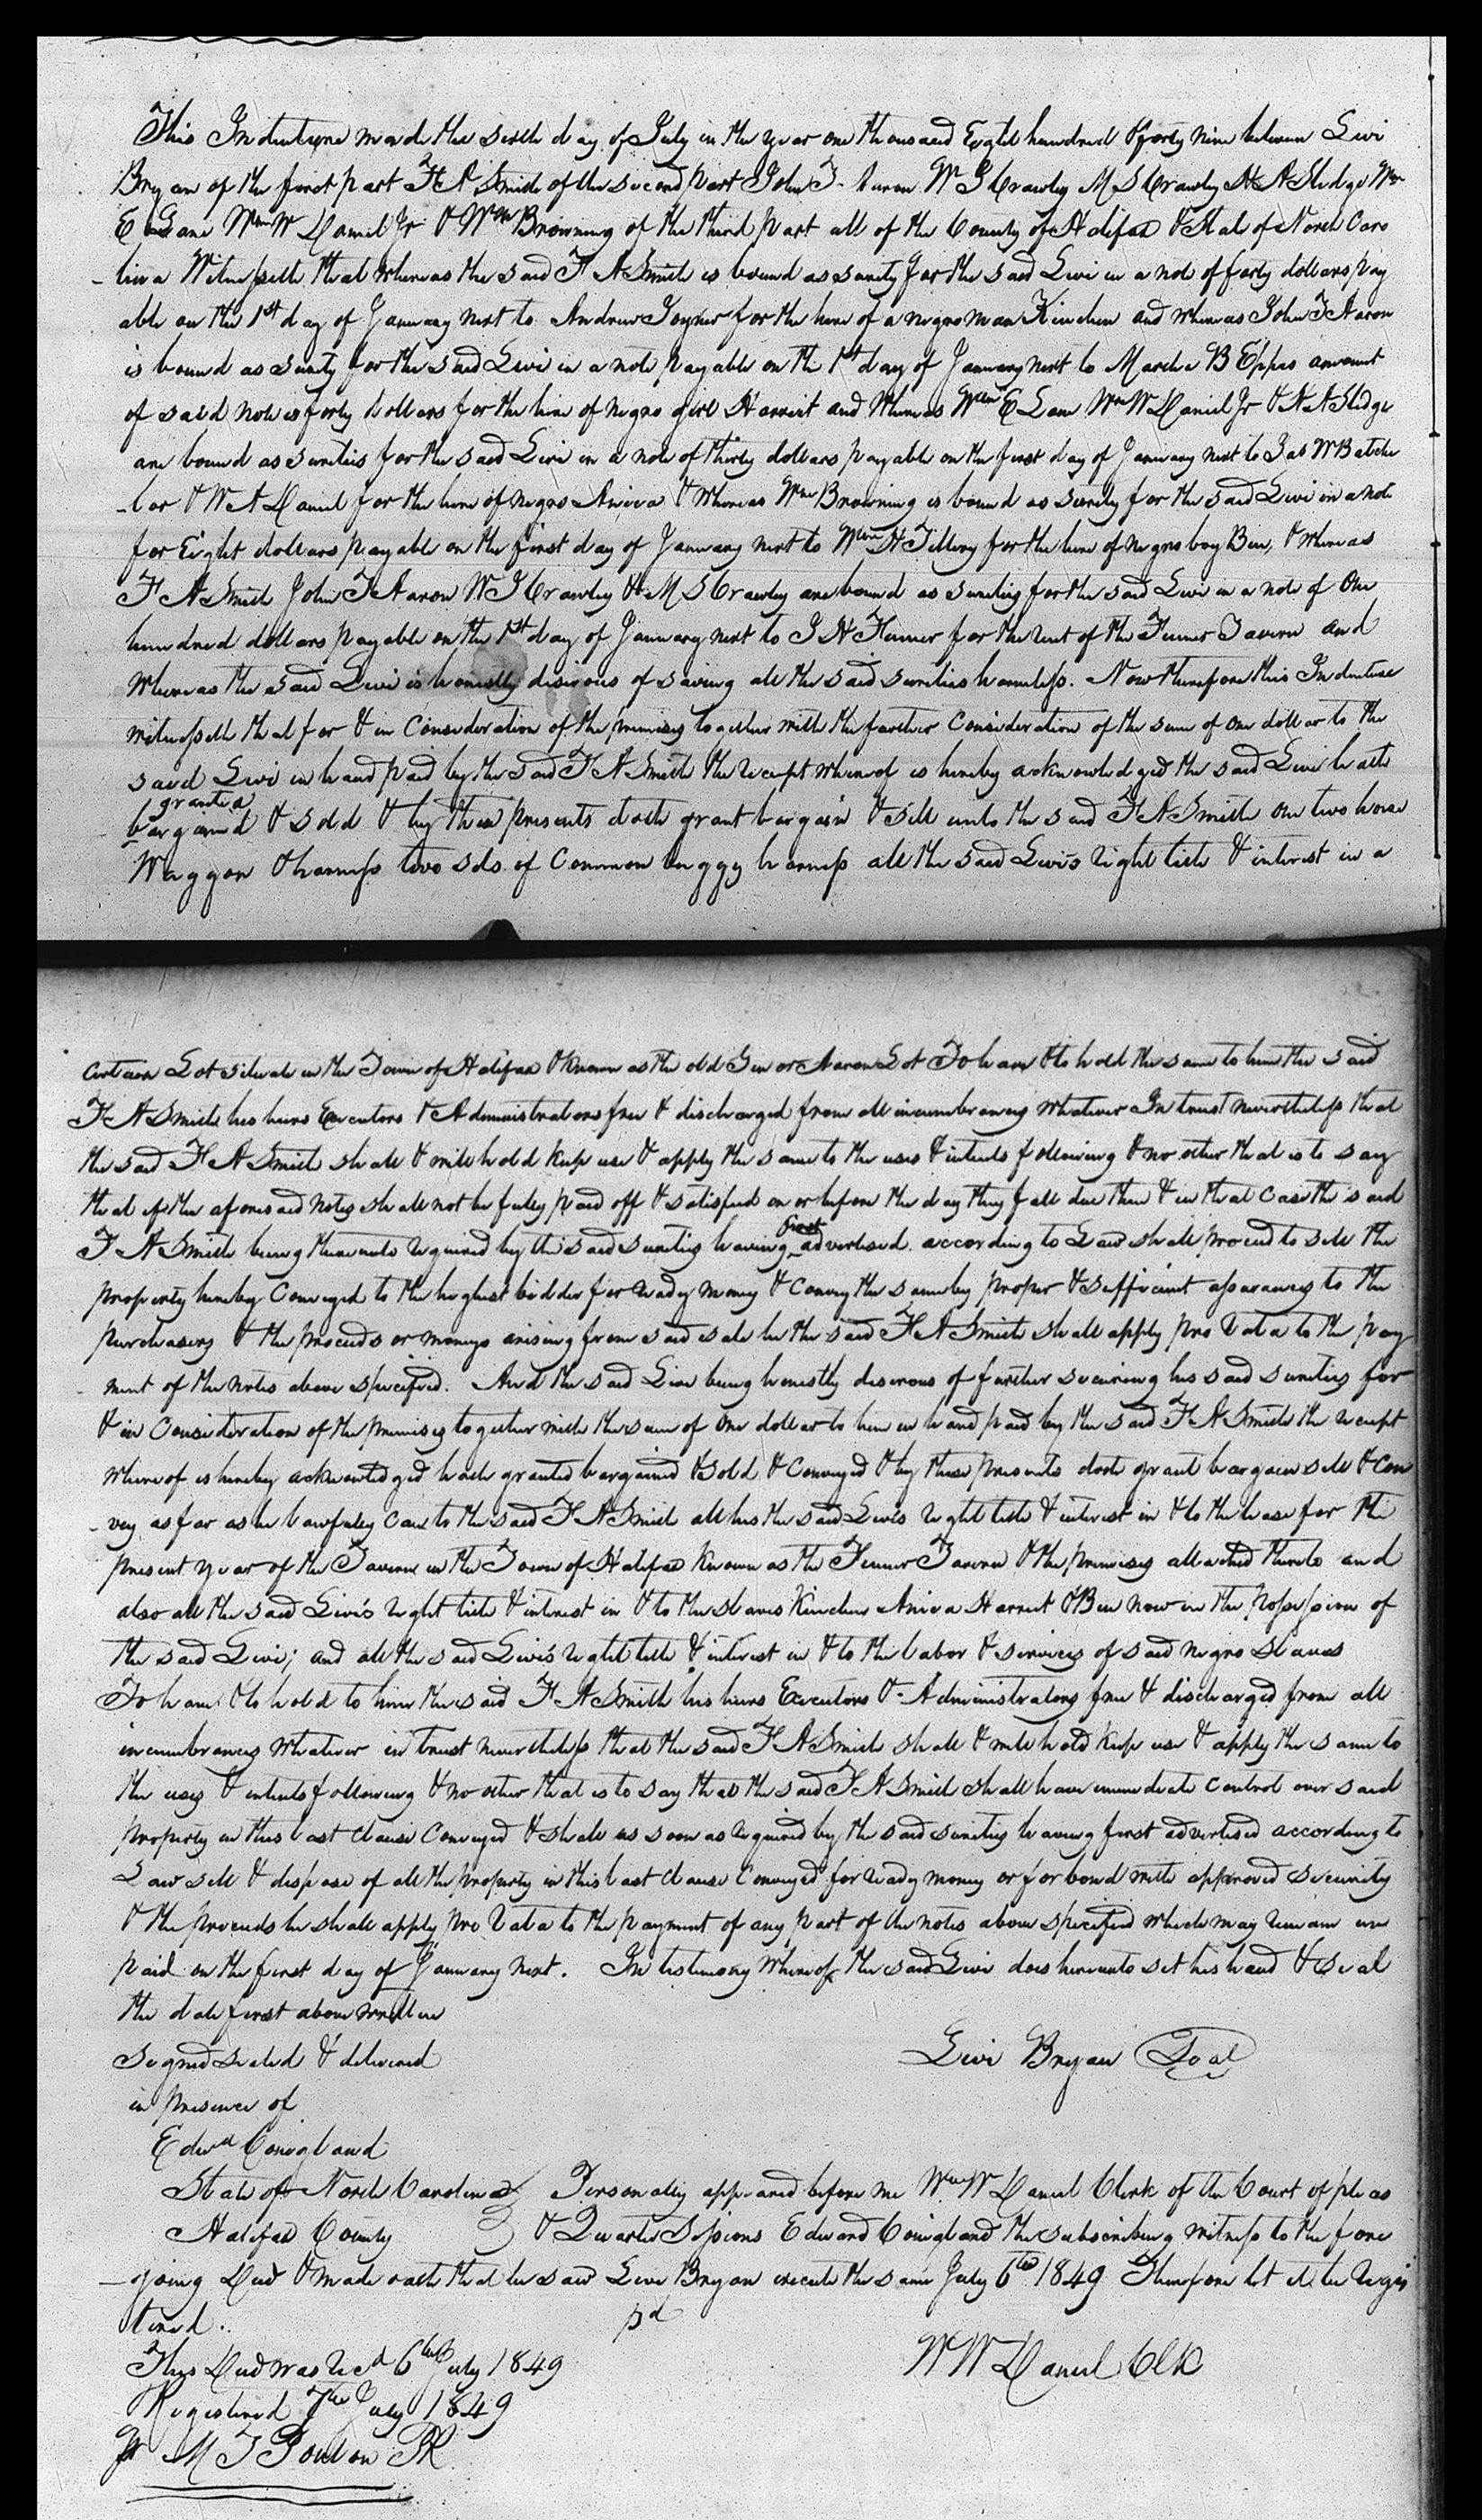 This Indenture made the sixth day of July in the year one thousand Eight hundred & forty nine between Levi
Bryan of the first part F A Smith of the second part John T. Aaron W J Crawley M S Crawley N A Sledge Wm
E Lane Wm W Daniel Jr & Wm Browning of the third part all of the County of Halifax & State of North Caro
-lina Witnesseth that whereas the said F A Smith is bound as surety for the said Levi in a note of forty dollars pay
able on the 1st day of January next to Andrew Joyner for the hire of a negro man Kinchen and whereas John T Aaron
is bound as surety for the said Levi in a note payable on the 1st day of January next to B Eppes amount
of said note is forty dollars for the hire of negro girl Harriet and Whereas Wm E Lane Wm W Daniel Jr & N A Sledge
are bound as sureties for the said Levi in a note of thirty dollars payable on the first day of January next to Jas W Batche
-lor & W A Daniel for the hire of negro Anica & Whereas Wm Browning is bound as surety for the said Levi in a note
for Eight dollars payable on the first day of January next to Wm H Tillery for the hire of negro boy Ben, & whereas
F A Smith John T Aaron W J Crawley & M S Crawley are bound as sureties for the said Levi in a note of One
hundred dollars payable on the 1st day of January next to J H Fenner for the rent of the Fenner Tavern and
Whereas the said Levi is honestly desirous of saving all the said sureties harmless. Now therefore this Indenture
witnesseth that for & in Consideration of the premises together with the further Consideration of the sum of one dollar to the
said Levi in hand paid by the said F A Smith the receipt whereof is hereby acknowledged the said Levi hath
granted
bargained & sold & by these presents doth grant bargain & sell unto the said F A Smith one two horse
Waggon & harness two sets of Common buggy harness all the said Levi's right title & interest in a
certain Lot situate in the Town of Halifax & known as the old Gin or Aaron Lot To have & to hold the same to him the said
F A Smith his heirs Executors & Administrators free & discharged from all incumbrances whatever In trust nevertheless that
the said F A Smith shall & will hold keep use & apply the same to the uses & intents following & no other that is to say
that if the aforesaid notes shall not be fully paid off & satisfied on or before the day they fall due then & in that case the said
F A Smith being thereunto required by the said sureties having first advertised according to Law shall proceed to sell the
property hereby Conveyed to the highest bidder for ready money & Convey the same by proper & sufficient assurances to the
purchasers & the proceeds or moneys arising from said sale he the said F A Smith shall apply pro rata to the pay
ment of the notes above specified. And the said Levi being honestly desirous of further securing his said sureties for
& in Consideration of the premises together with the sum of one dollar to him in hand paid by the said F A Smith the receipt
whereof is hereby acknowledged hath granted bargained & sold & Conveyed & by these presents doth grant bargain sell & Con
-vey as far as he lawfully can to the said F A Smith all his the said Levi's right title & interest in & to the lease for the
present year of the Tavern in the Town of Halifax known as the Fenner Tavern & the premises attached thereto and
also all the said Levi's right title & interest in & to the slaves Kinchen Anica Harriet & Ben now in the Possession of
the said Levi; and all the said Levi's right title & interest in & to the labor & services of said negro slaves
To have & to hold to him the said F A Smith his heirs Executors & Administrators free & discharged from all
incumbrances whatever in trust nevertheless that the said F A Smith shall & will hold keep use & apply the same to
the uses & intents following & no other that is to say that the said F A Smith shall have immediate control over said
property in this last clause Conveyed & shall as soon as required by the said sureties having first advertised according to
Law sell & dispose of all the property in this last clause Conveyed for ready money or for bond with approved security
& the proceeds he shall apply pro rata to the payment of any part of the notes above specified which may remain un
paid on the first day of January next. In testimony whereof the said Levi does hereunto set his hand & seal
the date first above written
Signed sealed & delivered Levi Bryan Seal
in presence of
Edwd Conigland
State of North Carolina } Personally appeared before me Wm W Daniel Clerk of the Court of pleas
Halifax County } & Quarter Sessions Edward Conigland the subscribing witness to the fore
-going Deed & made oath that he saw Levi Bryan execute the same July 6th 1849 Therefore let it be regis
tered. pd
This Deed was recd 6th July 1849 W W Daniel Clk
Registered 7th July 1849
M T Ponton PR